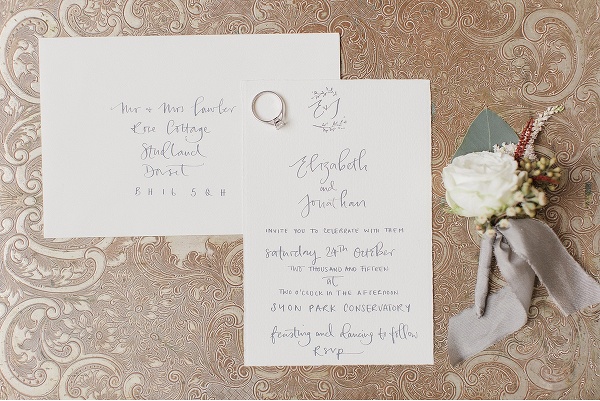 Mr & Mrs Fowler
Rose Cottage
Studland
Dorset
BH16 5QH
E & J
Elizabeth
and
Jonathan
INVITE YOU TO CELEBRATE WITH THEM
saturday 24th October
TWO THOUSAND AND FIFTEEN
at
TWO O'CLOCK IN THE AFTERNOON
SYON PARK CONSERVATORY
feasting and dancing to follow
Rsvp